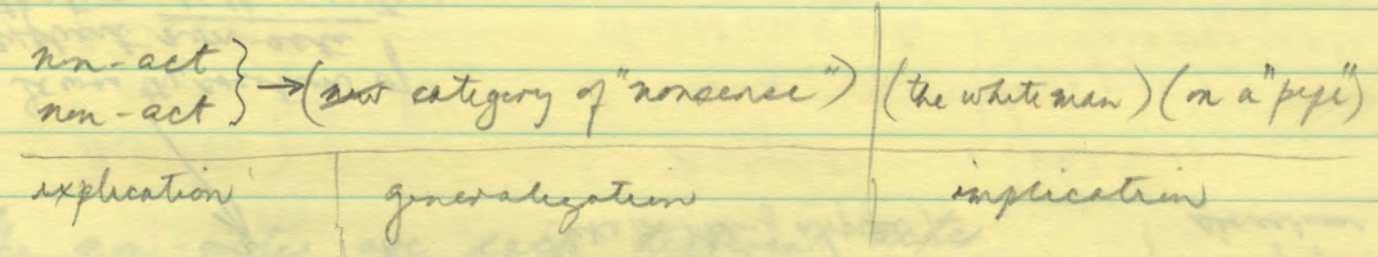 non-act
non-act } → (new category of "nonsense") (the white man) (on a "pipe")
explication generalization implication